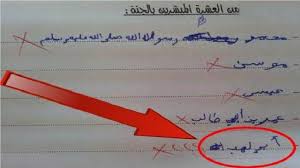 من العشرة المبشرين بالجنة:
محمد رسول الله صلى الله عليه وسلم
موسى
عيسى
عمر بن أبي طالب
أبو لهب